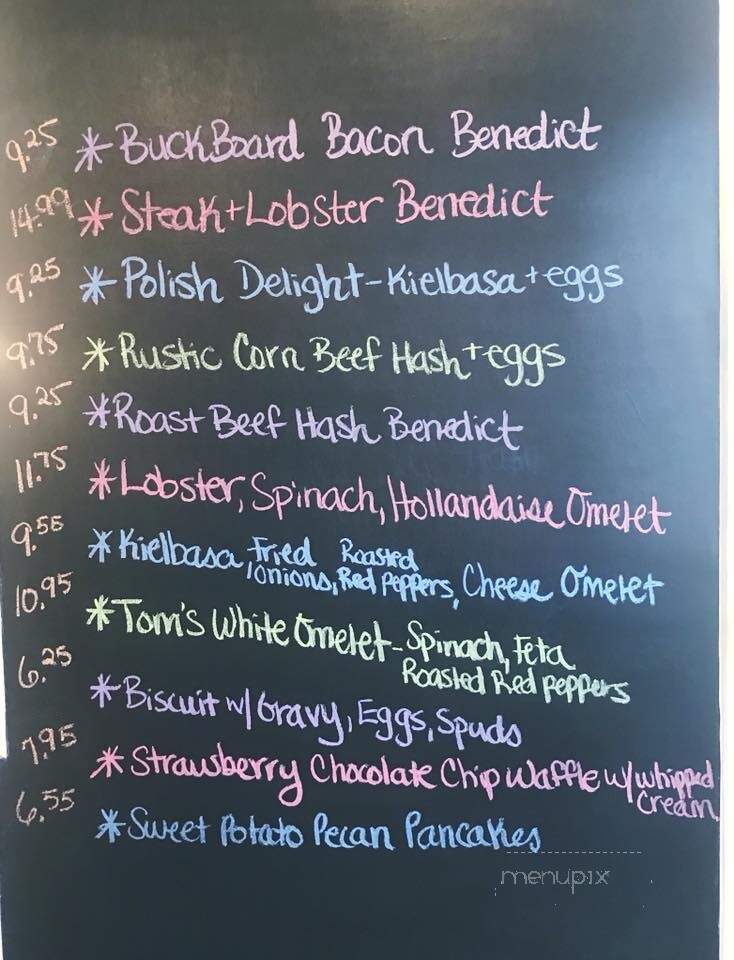 9.25 * BuckBoard Bacon Benedict
14.99 * Steak + Lobster Benedict
9.25 * Polish Delight - Kielbasa + eggs
9.75 * Rustic Corn Beef Hash + eggs
9.25 * Roast Beef Hash Benedict
11.75 * Lobster, Spinach, Hollandaise Omelet
9.55 * Kielbasa, Fried onions, Roasted Red Peppers, Cheese Omelet
10.95 * Tom's White Omelet - Spinach, Feta
Roasted Red peppers
6.25 * Biscuit w/ Gravy, Eggs, Spuds
7.95 * Strawberry Chocolate Chip Waffle w/ whipped
Cream
6.55 * Sweet Potato Pecan Pancakes
menupix